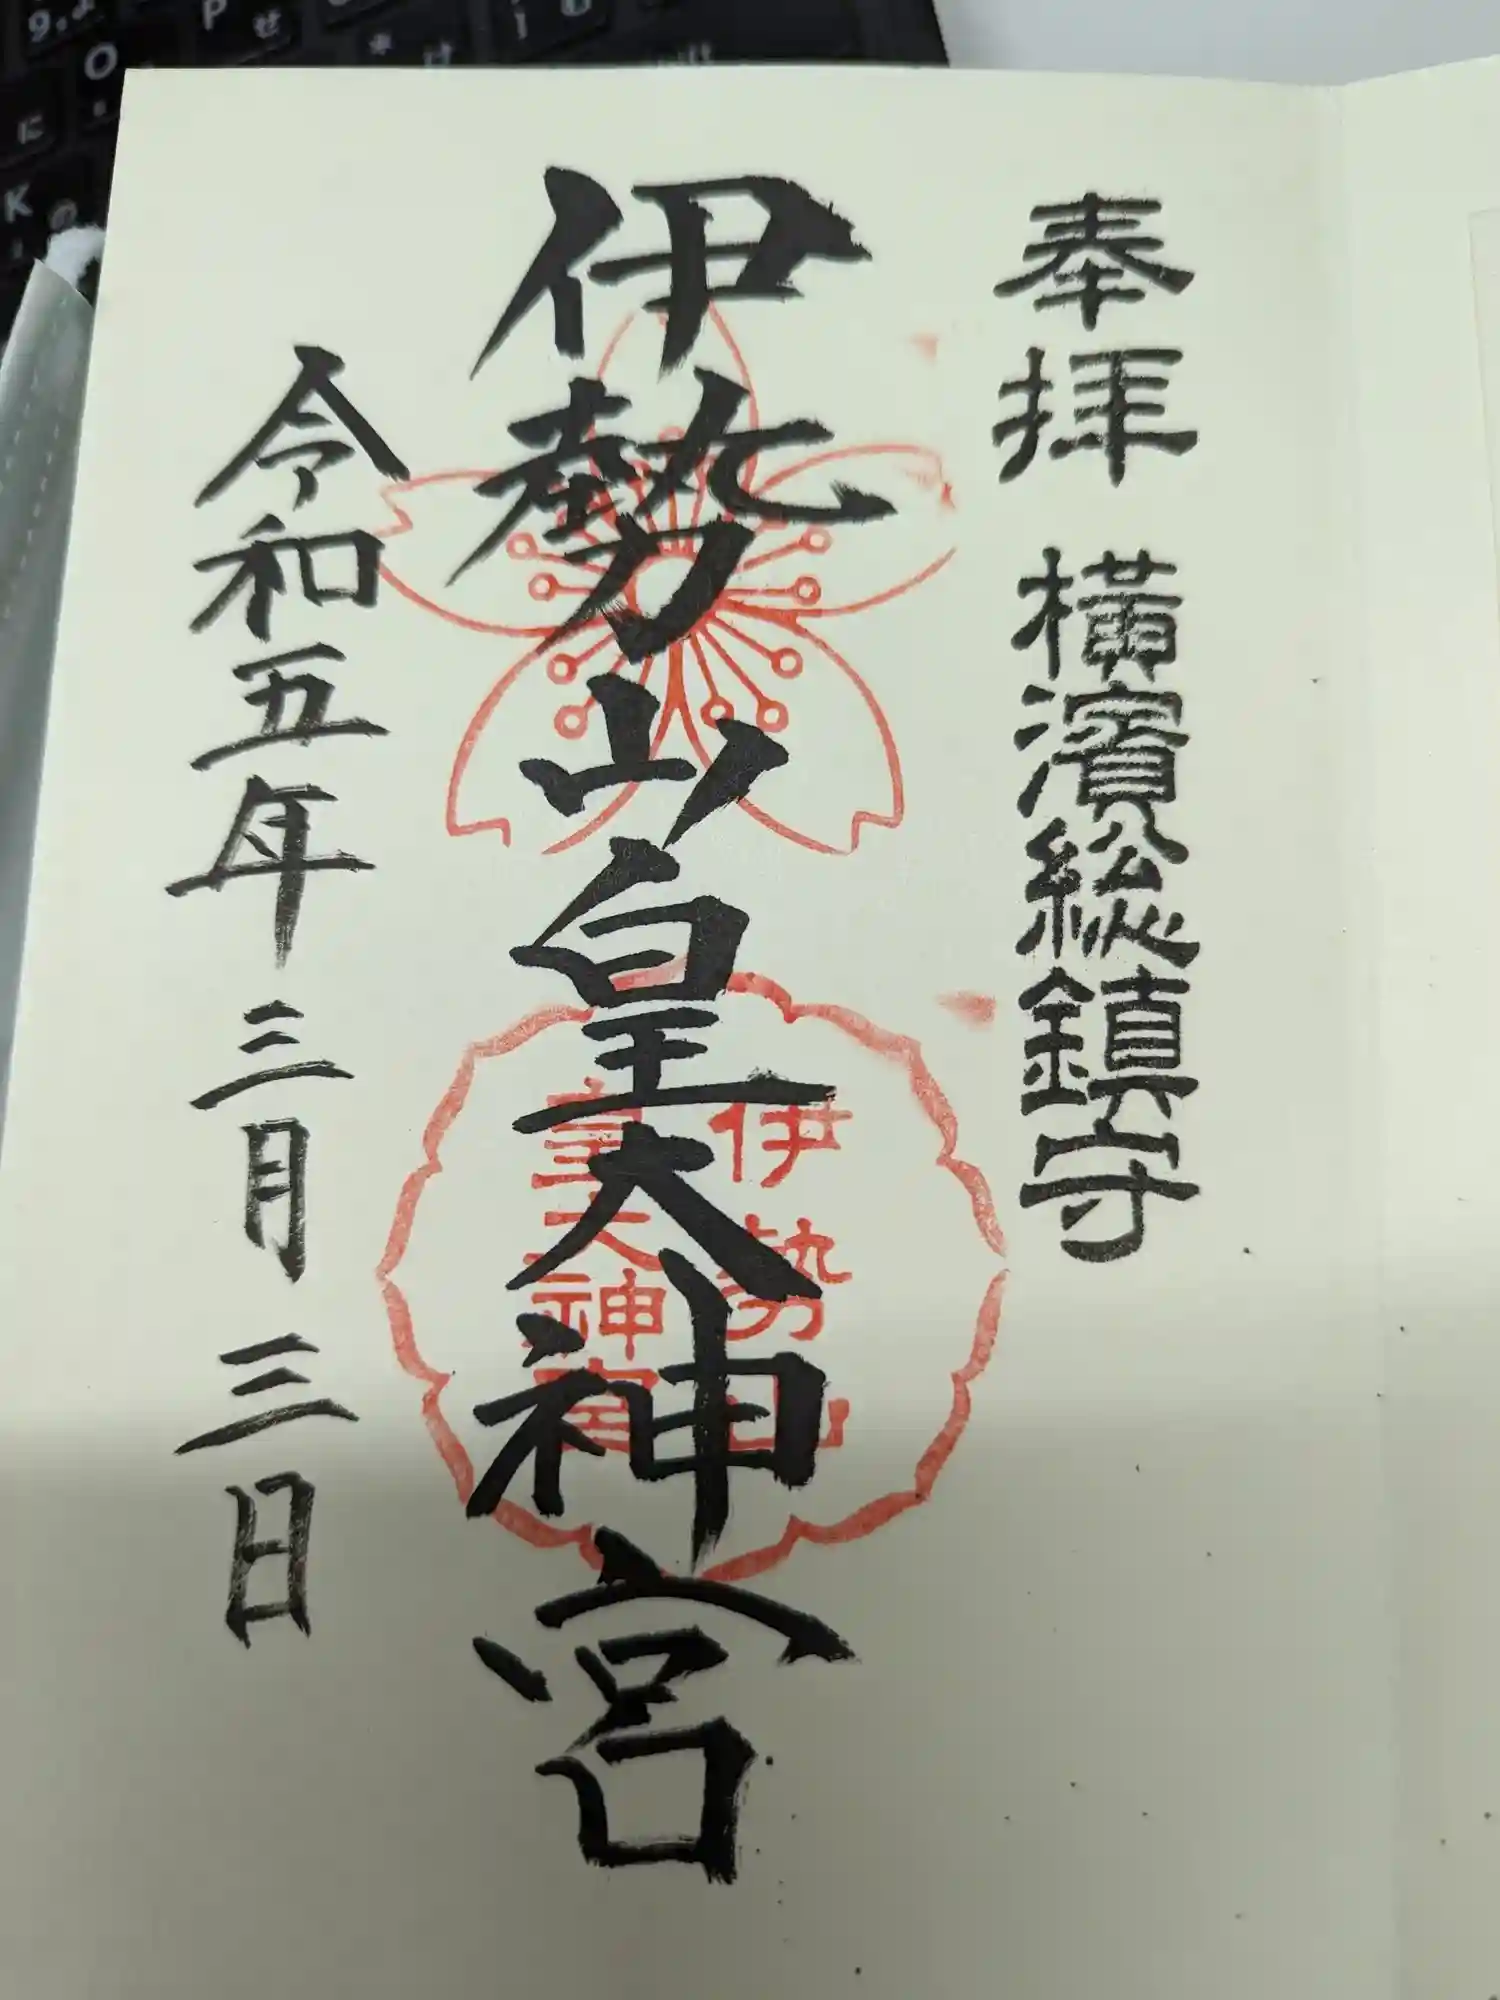 奉拝 横濱総鎮守
伊勢山皇大神宮
伊勢山
皇大神宮
令和五年三月三日
P
せ
O
に
K
の
け